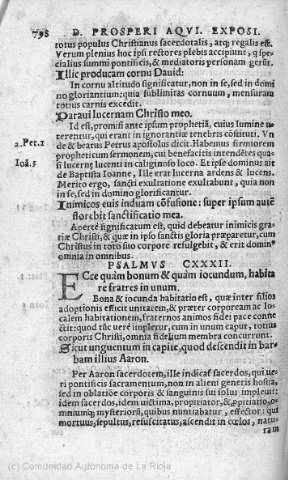 798 D. PROSPERI AQVI. EXPOSI.
totus populus Christianus sacerdotalis, atq; regalis est.
Verum plenius hoc ipsi rectores plebis accipiunt, q; spe-
cialius summi pontificis, & mediatoris personam gerūt.
Illic producam cornu Dauid:
In cornu altitudo significatur, non in se, sed in domi
no gloriantium: quia sublimitas cornuum, mensuram
totius carnis excedit.
Paraui lucernam Christo meo.
Id est, promisi ante ipsum prophetiā, cuius lumine u
terentur, qui erant in ignorantiæ tenebris cōstituti. Vn
2. Pet. 1 de & beatus Petrus apostolus dicit. Habemus firmiorem
propheticum sermonem, cui benefacitis intendētes qua-
si lucernę lucenti in caliginoso loco. Et ipse dominus ait
Ioā. 5 de Baptista Ioanne, Ille erat lucerna ardens & lucens.
Merito ergo, sancti exultatione exultabunt, quia non
in se, sed in domino glorificantur.
Inimicos euis induam cōfusione: super ipsum autē
florebit sanctificatio mea.
Apertè significatum est, quid debeatur inimicis gra-
tiæ Christi, & quæ in ipso sanctis gloria præparetur, cum
Christus in toto suo corpore refulgebit, & erit domin°
omnia in omnibus.
PSALMVS CXXXII.
ECce quàm bonum & quàm iocundum, habita
re fratres in unum.
Bona & iocunda habitatio est, quæ inter filios
adoptionis efficit unitatem, & præter corpoream ac lo-
calem habitationem, fraternos animos fidei pace conne
ctit: quod tūc uerè impletur, cum in unum caput, totius
corporis Christi, omnia fidelium membra concurrunt.
Sicut unguentum in capite, quod descendit in bar-
bam illius Aaron.
Per Aaron sacerdotem, ille indicaf sacerdos, qui ue-
ri pontificis sacramentum, non in alieni generis hostia,
sed in oblatiōe corporis & sanguinis sui solus impleuit:
idem sacerdos, idem uictima, propitiator, & ppitiatio, o-
mniumq; mysteriorū, quibus nuntiabatur, effector: qui
mortuus, sepultus, resuscitatus, ascendit in cœlos, natu-
ram
(c) Comunidad Autónoma de La Rioja